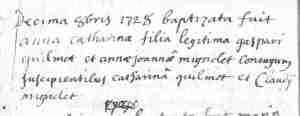 Decima 8bris 1728 baptizata fuit
anna catharina filia legitima gaspari
quilmot et annæ joannæ mignolet Conjugum
suscipientibus catharina quilmot et Claudij
mignolet